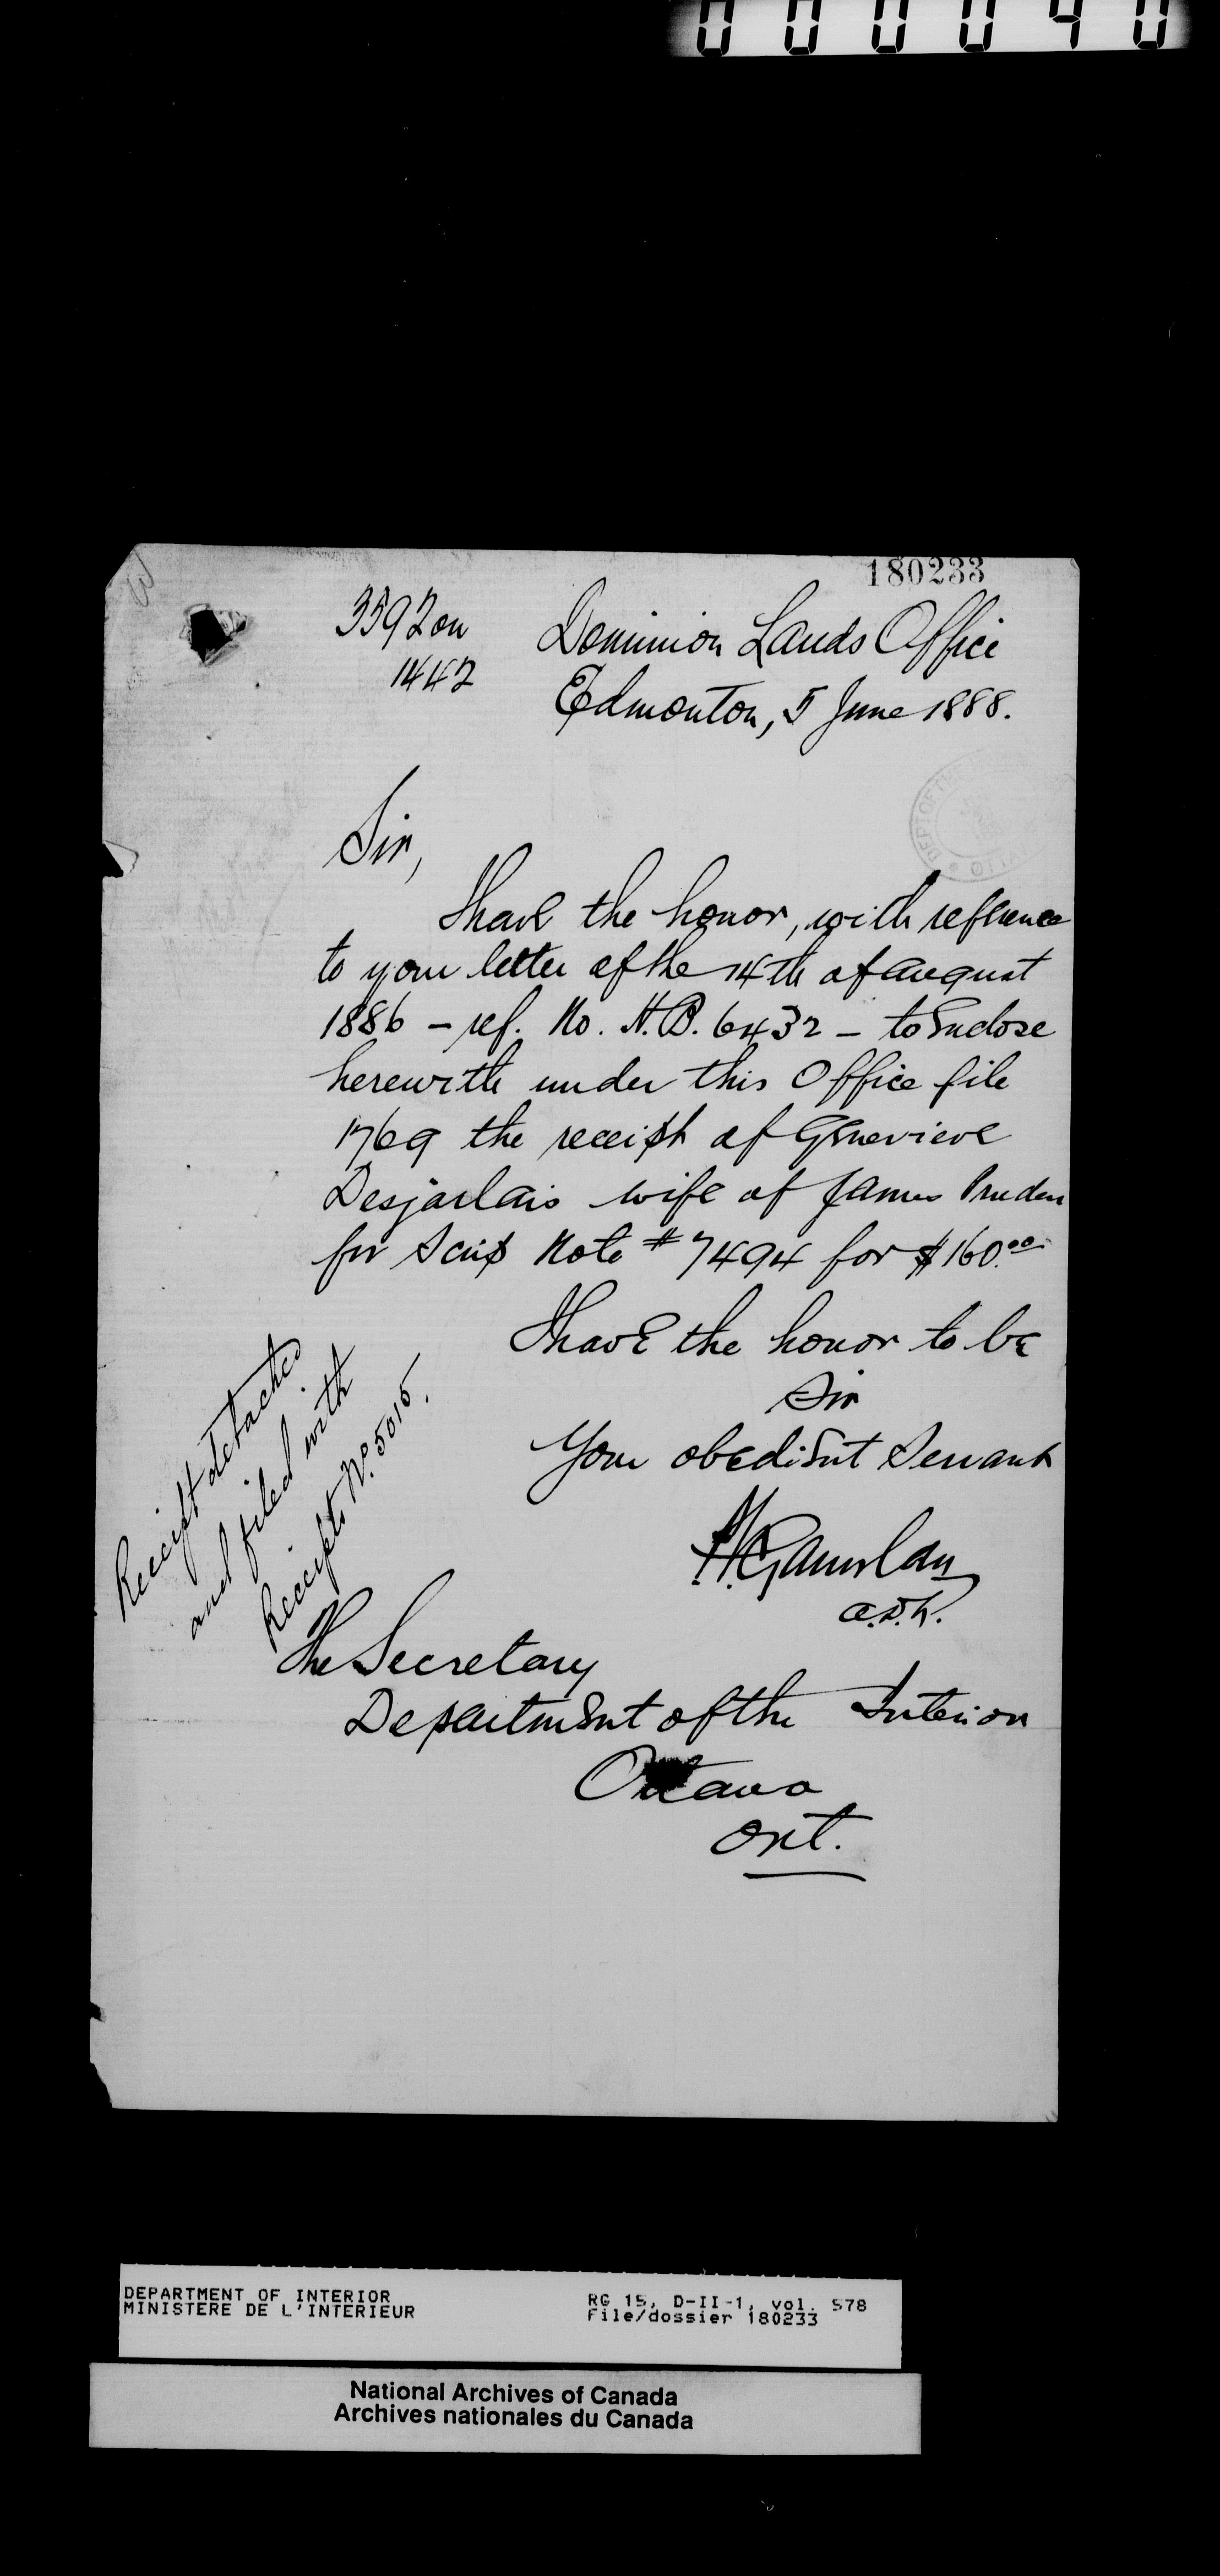 000040
180233
3592 on
1442
Dominion Lands Office
Edmonton, 5 June 1888.
Sir,
I have the honor, with reference
to your letter of the 14th of August
1886 – ref. No. H.B. 6432 – to Enclose
herewith under this Office file
1769 the receipt of Genevieve
Desjarlais wife of James Pruden
for Scrip Note # 7494 for $160.00
I have the honor to be
Sir
Your obedient Servant
a.D.L.
Receipt detached
and filed with
Receipts No. 5015.
The Secretary
Department of the Interior
Ottawa
Ont.
DEPARTMENT OF INTERIOR
MINISTERE DE L'INTERIEUR
RG 15, D-II-1, vol. 578
File/dossier 180233
National Archives of Canada
Archives nationales du Canada